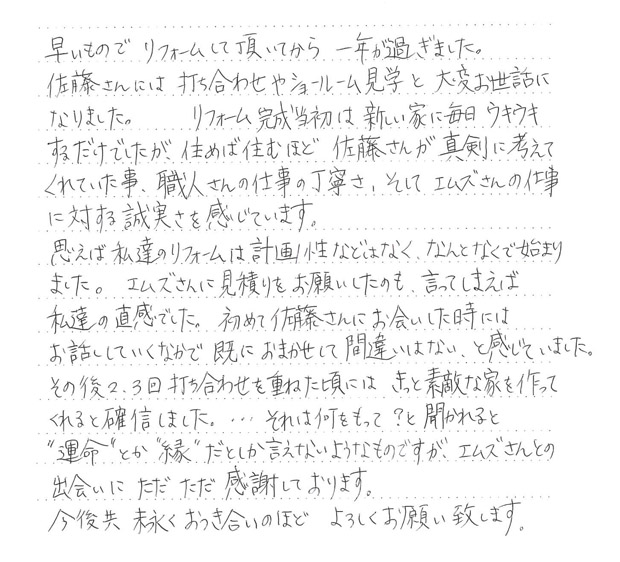 早いもので リフォームして頂いてから 一年が過ぎました。
佐藤さんには 打ち合わせやショールーム見学と 大変お世話に
なりました。 リフォーム完成当初は 新しい家に毎日 ウキウキ
するだけでしたが、住めば住むほど 佐藤さんが 真剣に考えて
くれていた事、職人さんの仕事の丁寧さ、そして エムズさんの仕事
に対する誠実さを感じています。
思えば私達のリフォームは計画性などはなく、なんとなくで始まり
ました。 エムズさんに見積りをお願いしたのも、言ってしまえば
私達の直感でした。 初めて佐藤さんにお会いした時には
お話ししていくなかで 既に おまかせして 間違いはない、と感じていました。
その後2.3回打ち合わせを重ねた頃には きっと素敵な家を作って
くれると確信しました。… それは何をもって?と聞かれると
“運命“とか“縁“だとしか言えないようなものですが、エムズさんとの
出会いに ただ ただ 感謝しております。
今後共 末永く おつき合いのほど よろしくお願い致します。